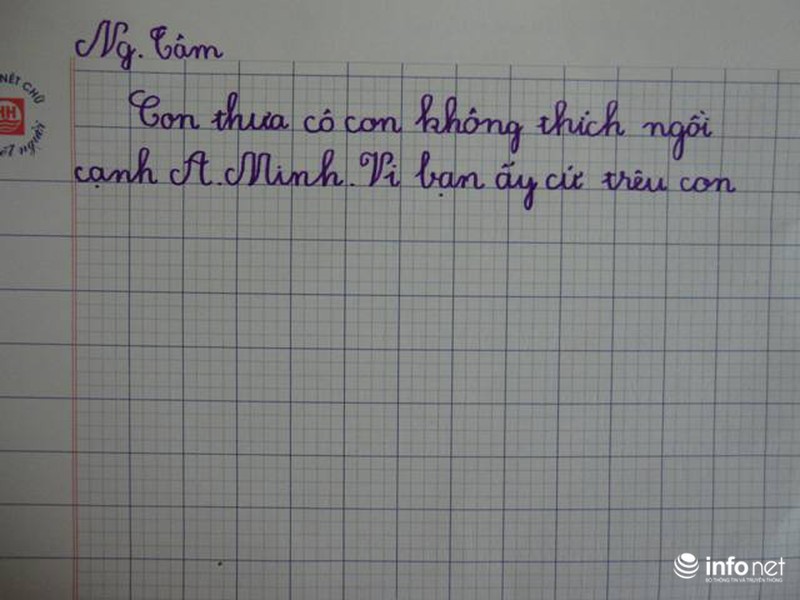 Ng. Tâm
Con thưa cô con không thích ngồi
cạnh A. Minh. Vì bạn ấy cứ trêu con
NÉT CHỮ
HH
nết người
infonet
BỘ THÔNG TIN VÀ TRUYỀN THÔNG